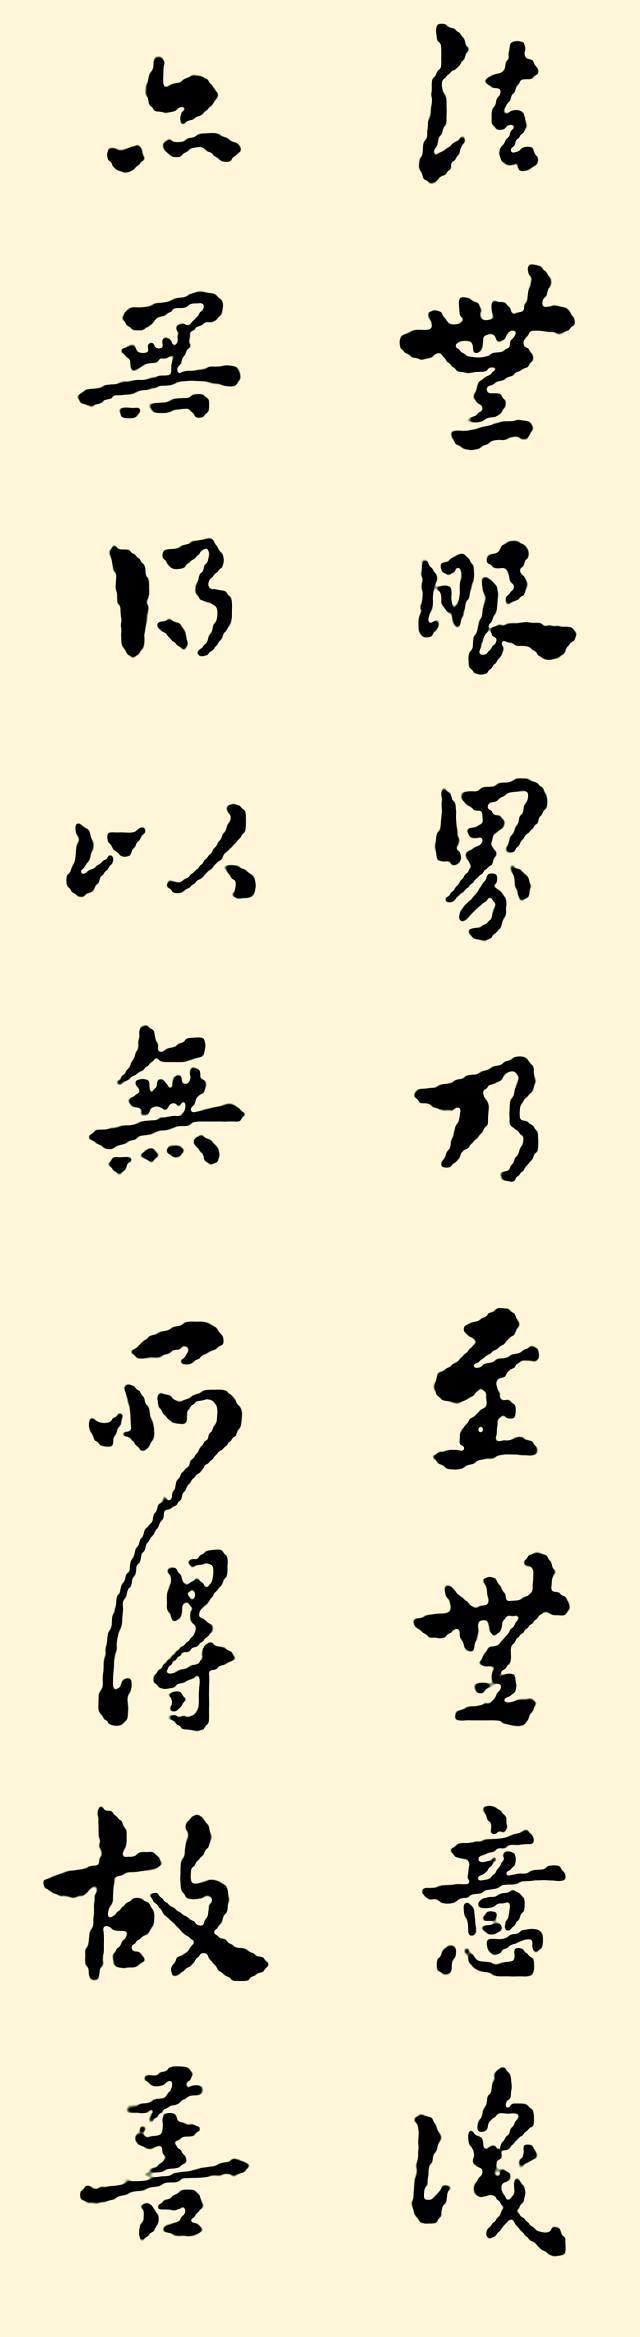 法無眼界乃至無意識
亦無得以無所得故菩